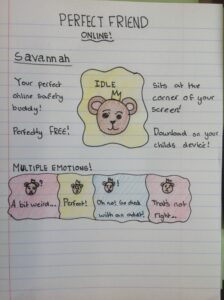 PERFECT FRIEND
ONLINE!
Savannah
Your perfect
online safety
buddy!
Perfectly FREE!
IDLE
Sits at the
corner of your
screen!
Download on your
childs device!
MULTIPLE EMOTIONS!
A bit weird...
Perfect!
Oh no! Go check
with an adult!
That's not
right...